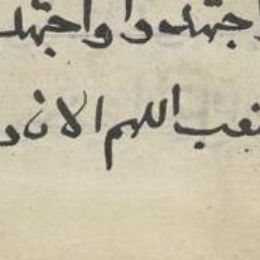 واجتهدوا واجتهد
تعب اللهم الا ان